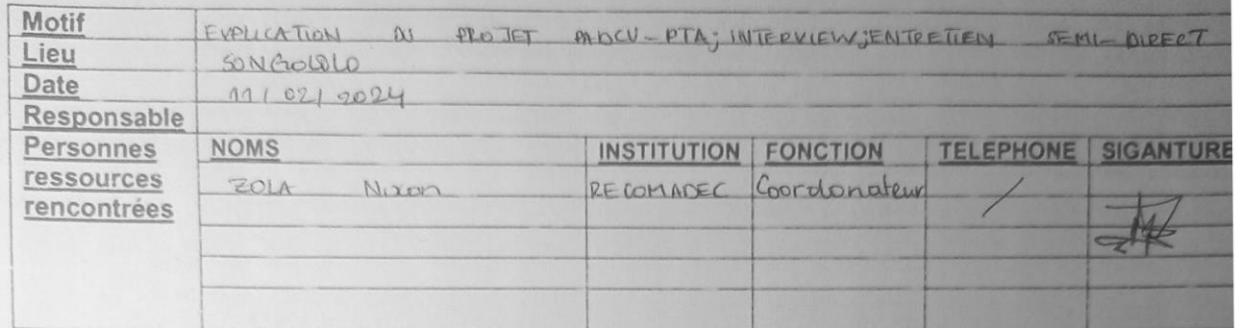 Motif EXPLICATION DU PROJET PADCV-PTA; INTERVIEW; ENTRETIEN SEMI-DIRECT
Lieu SONGOLOLO
Date 11/02/2024
Responsable
Personnes ressources rencontrées
NOMS INSTITUTION FONCTION TELEPHONE SIGANTURE
ZOLA Nixon RECOMADEC Coordonateur /